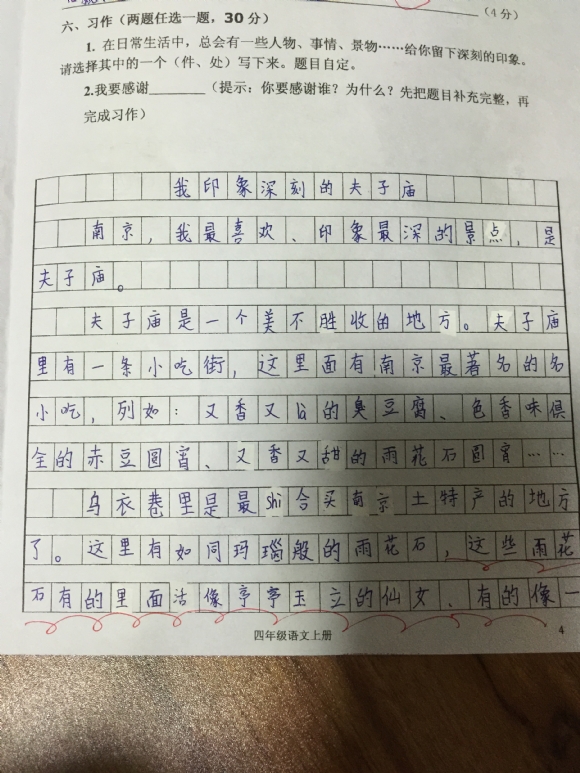 (4分)
六、习作（两题任选一题，30分）
1. 在日常生活中，总会有一些人物、事情、景物……给你留下深刻的印象。
请选择其中的一个（件、处）写下来。题目自定。
2.我要感谢______（提示：你要感谢谁？为什么？先把题目补充完整，再
完成习作）
我印象深刻的夫子庙
南京，我最喜欢、印象最深的景点，是
夫子庙。
夫子庙是一个美不胜收的地方。夫子庙
里有一条小吃街，这里面有南京最著名的名
小吃，列如：又香又là的臭豆腐、色香味俱
全的赤豆圆宵、又香又甜的雨花石圆宵……
乌衣巷里是最shì合买南京土特产的地方
了。这里有如同玛瑙般的雨花石，这些雨花
石有的里面活像亭亭玉立的仙女、有的像一
四年级语文上册
4